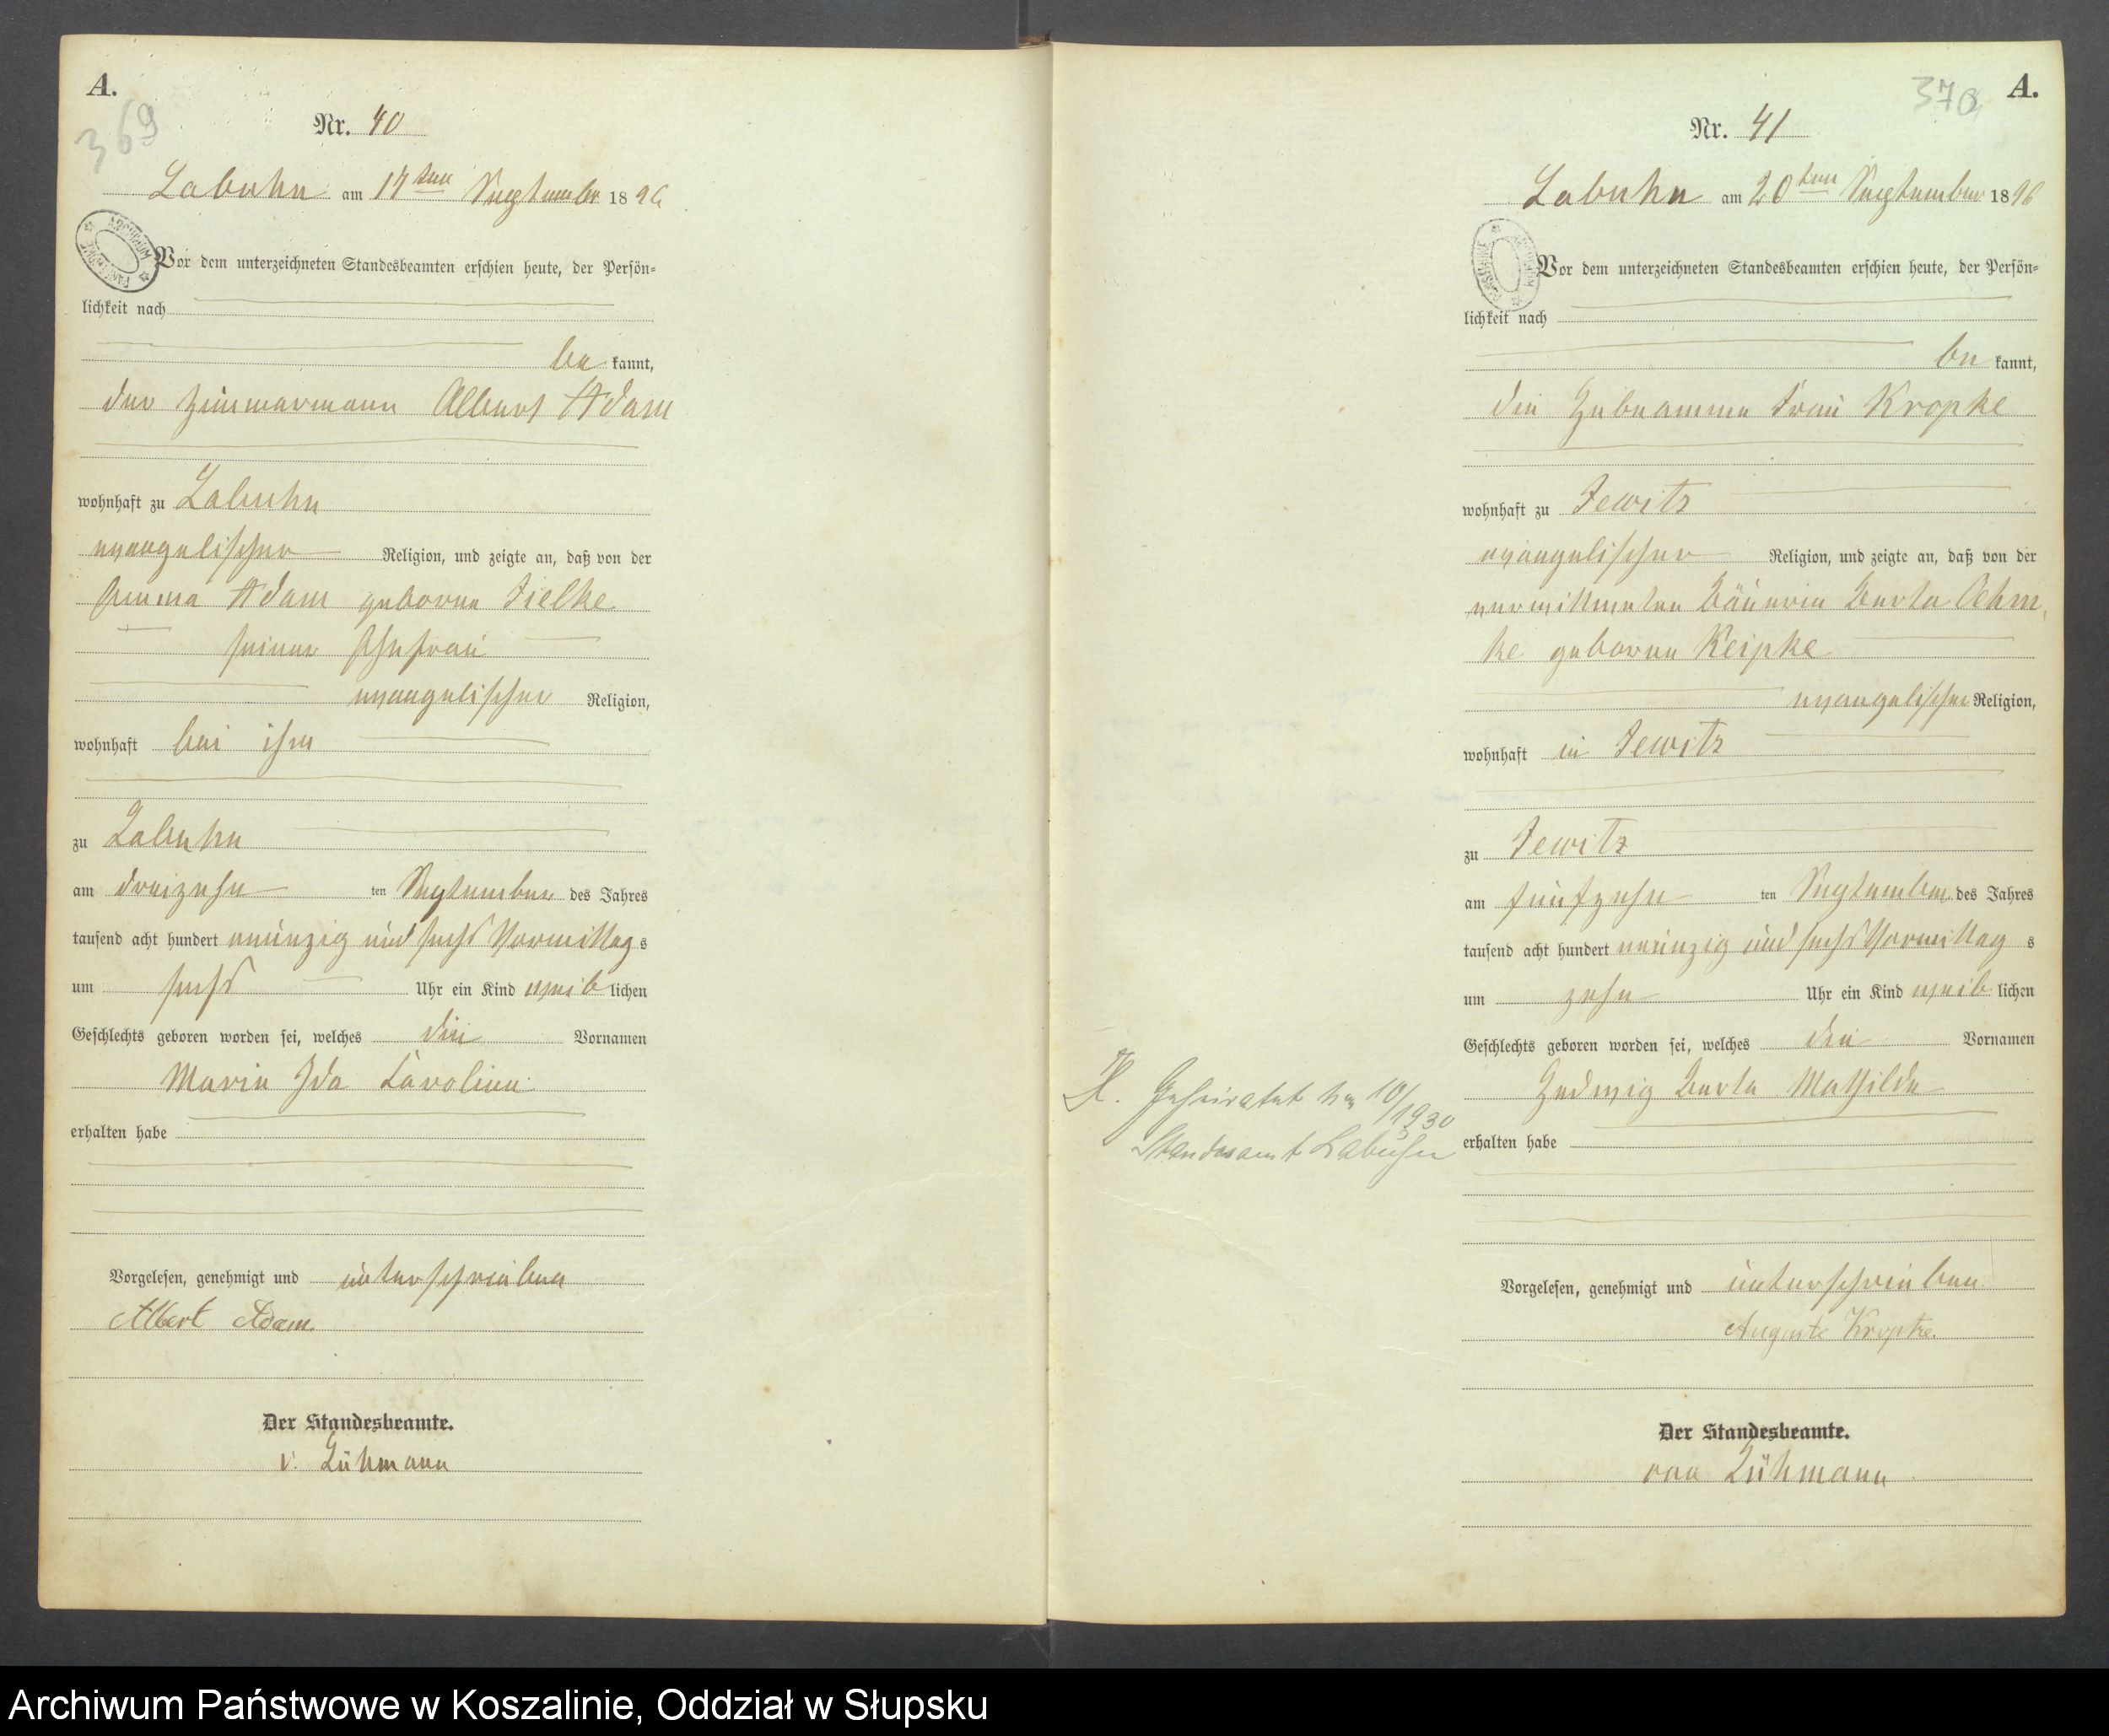 A.
369
Nr. 40
Labuhn am 17ten September 1896
Vor dem unterzeichneten Standesbeamten erschien heute, der Persön=
lichkeit nach
be kannt,
der Zimmermann Albert Adam
wohnhaft zu Labuhn
evangelischer Religion, und zeigte an, daß von der
Emma Adam geborne Zielke
seiner Ehefrau
evangelischer Religion,
wohnhaft bei ihm
zu Labuhn
am dreizehn ten September des Jahres
tausend acht hundert neunzig und sechs Vormittag s
um sechs Uhr ein Kind weib lichen
Geschlechts geboren worden sei, welches die Vornamen
Marie Ida Caroline
erhalten habe
Vorgelesen, genehmigt und unterschrieben
Albert Adam
Der Standesbeamte.
v. Lühmann
A.
370
Nr. 41
Labuhn am 20ten September 1896
Vor dem unterzeichneten Standesbeamten erschien heute, der Persön=
lichkeit nach
be kannt,
die Hebeamme Frau Kropke
wohnhaft zu Jewitz
evangelischer Religion, und zeigte an, daß von der
verwittweten Bäuerin Berta Oehm,
ke geborne Reipke
evangelischer Religion,
wohnhaft in Jewitz
zu Jewitz
am fünfzehn ten September des Jahres
tausend acht hundert neunzig und sechs Vormittag s
um zehn Uhr ein Kind weib lichen
Geschlechts geboren worden sei, welches die Vornamen
Hedwig Berta Mathilde
erhalten habe
Vorgelesen, genehmigt und unterschrieben
Auguste Kropke.
Der Standesbeamte.
von Lühmann
H. Geheiratet Nr 10/1930
Standesamt Labuhn
Archiwum Państwowe w Koszalinie, Oddział w Słupsku